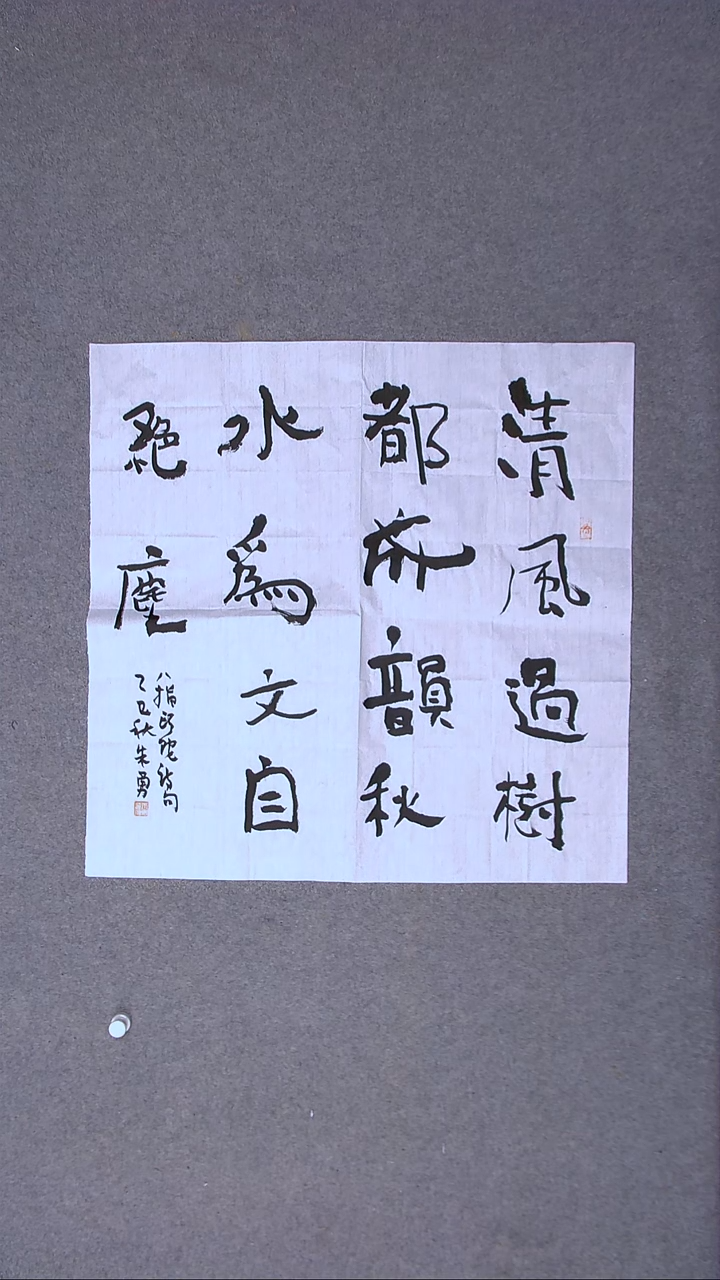 清風過樹
都成韻秋
水為文自
絕塵
八指頭陀詩句
乙巳秋朱勇